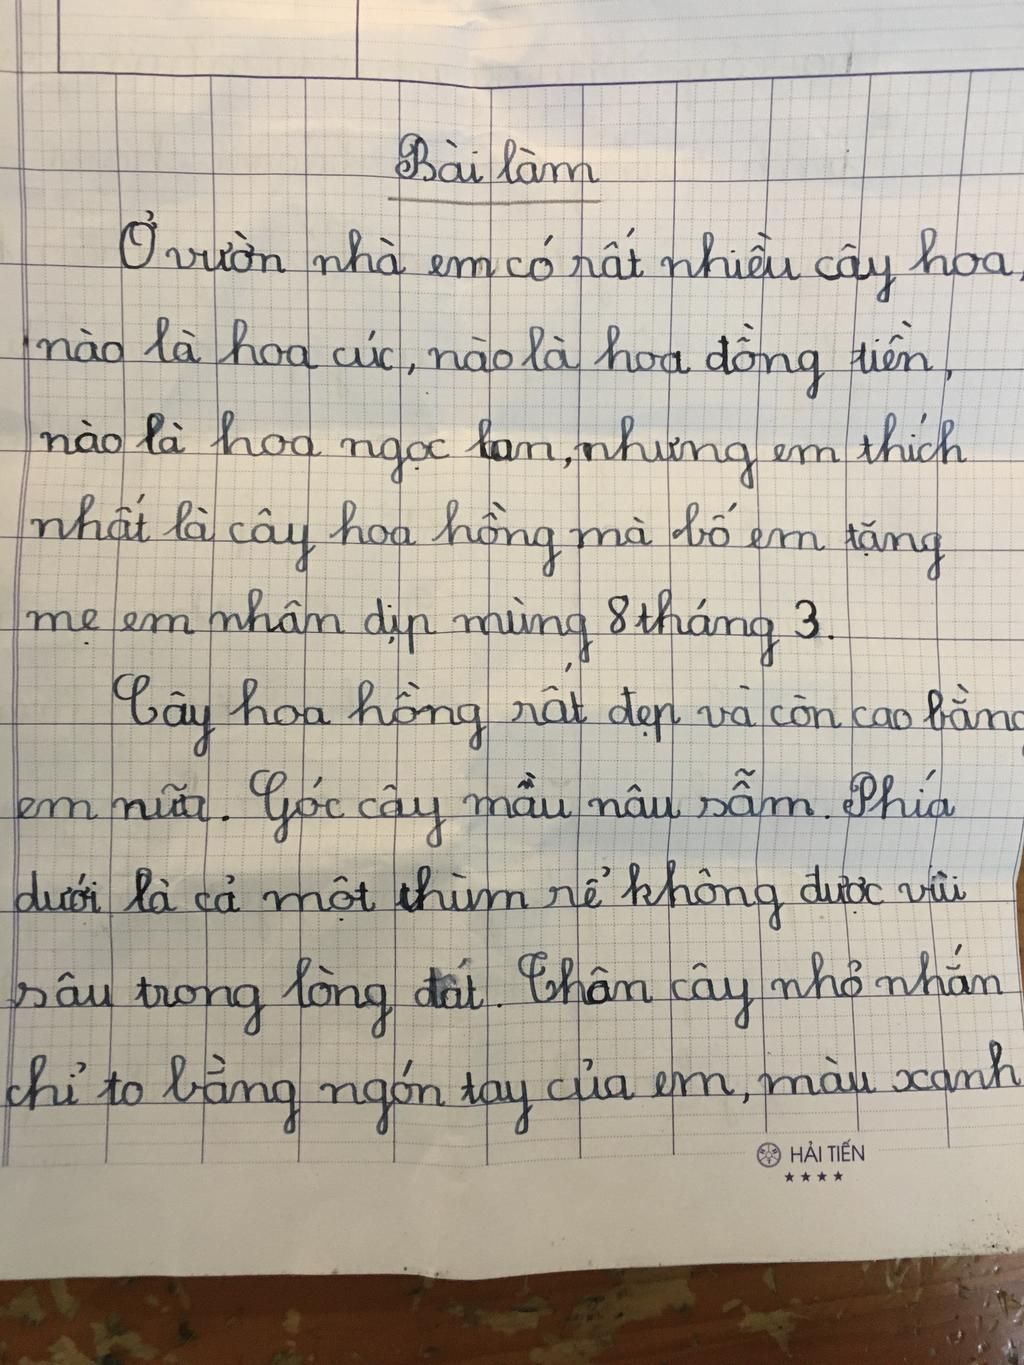 Bài làm
Ở vườn nhà em có rất nhiều cây hoa,
nào là hoa cúc, nào là hoa đồng tiền,
nào là hoa ngọc lan, nhưng em thích
nhất là cây hoa hồng mà bố em tặng
mẹ em nhân dịp mùng 8 tháng 3.
Cây hoa hồng rất đẹp và còn cao bằng
em nữa. Gốc cây mầu nâu sẫm. Phía
dưới là cả một thùm rể không được vùi
sâu trong lòng đất. Thân cây nhỏ nhắn
chỉ to bằng ngón tay của em, màu xanh
HẢI TIẾN